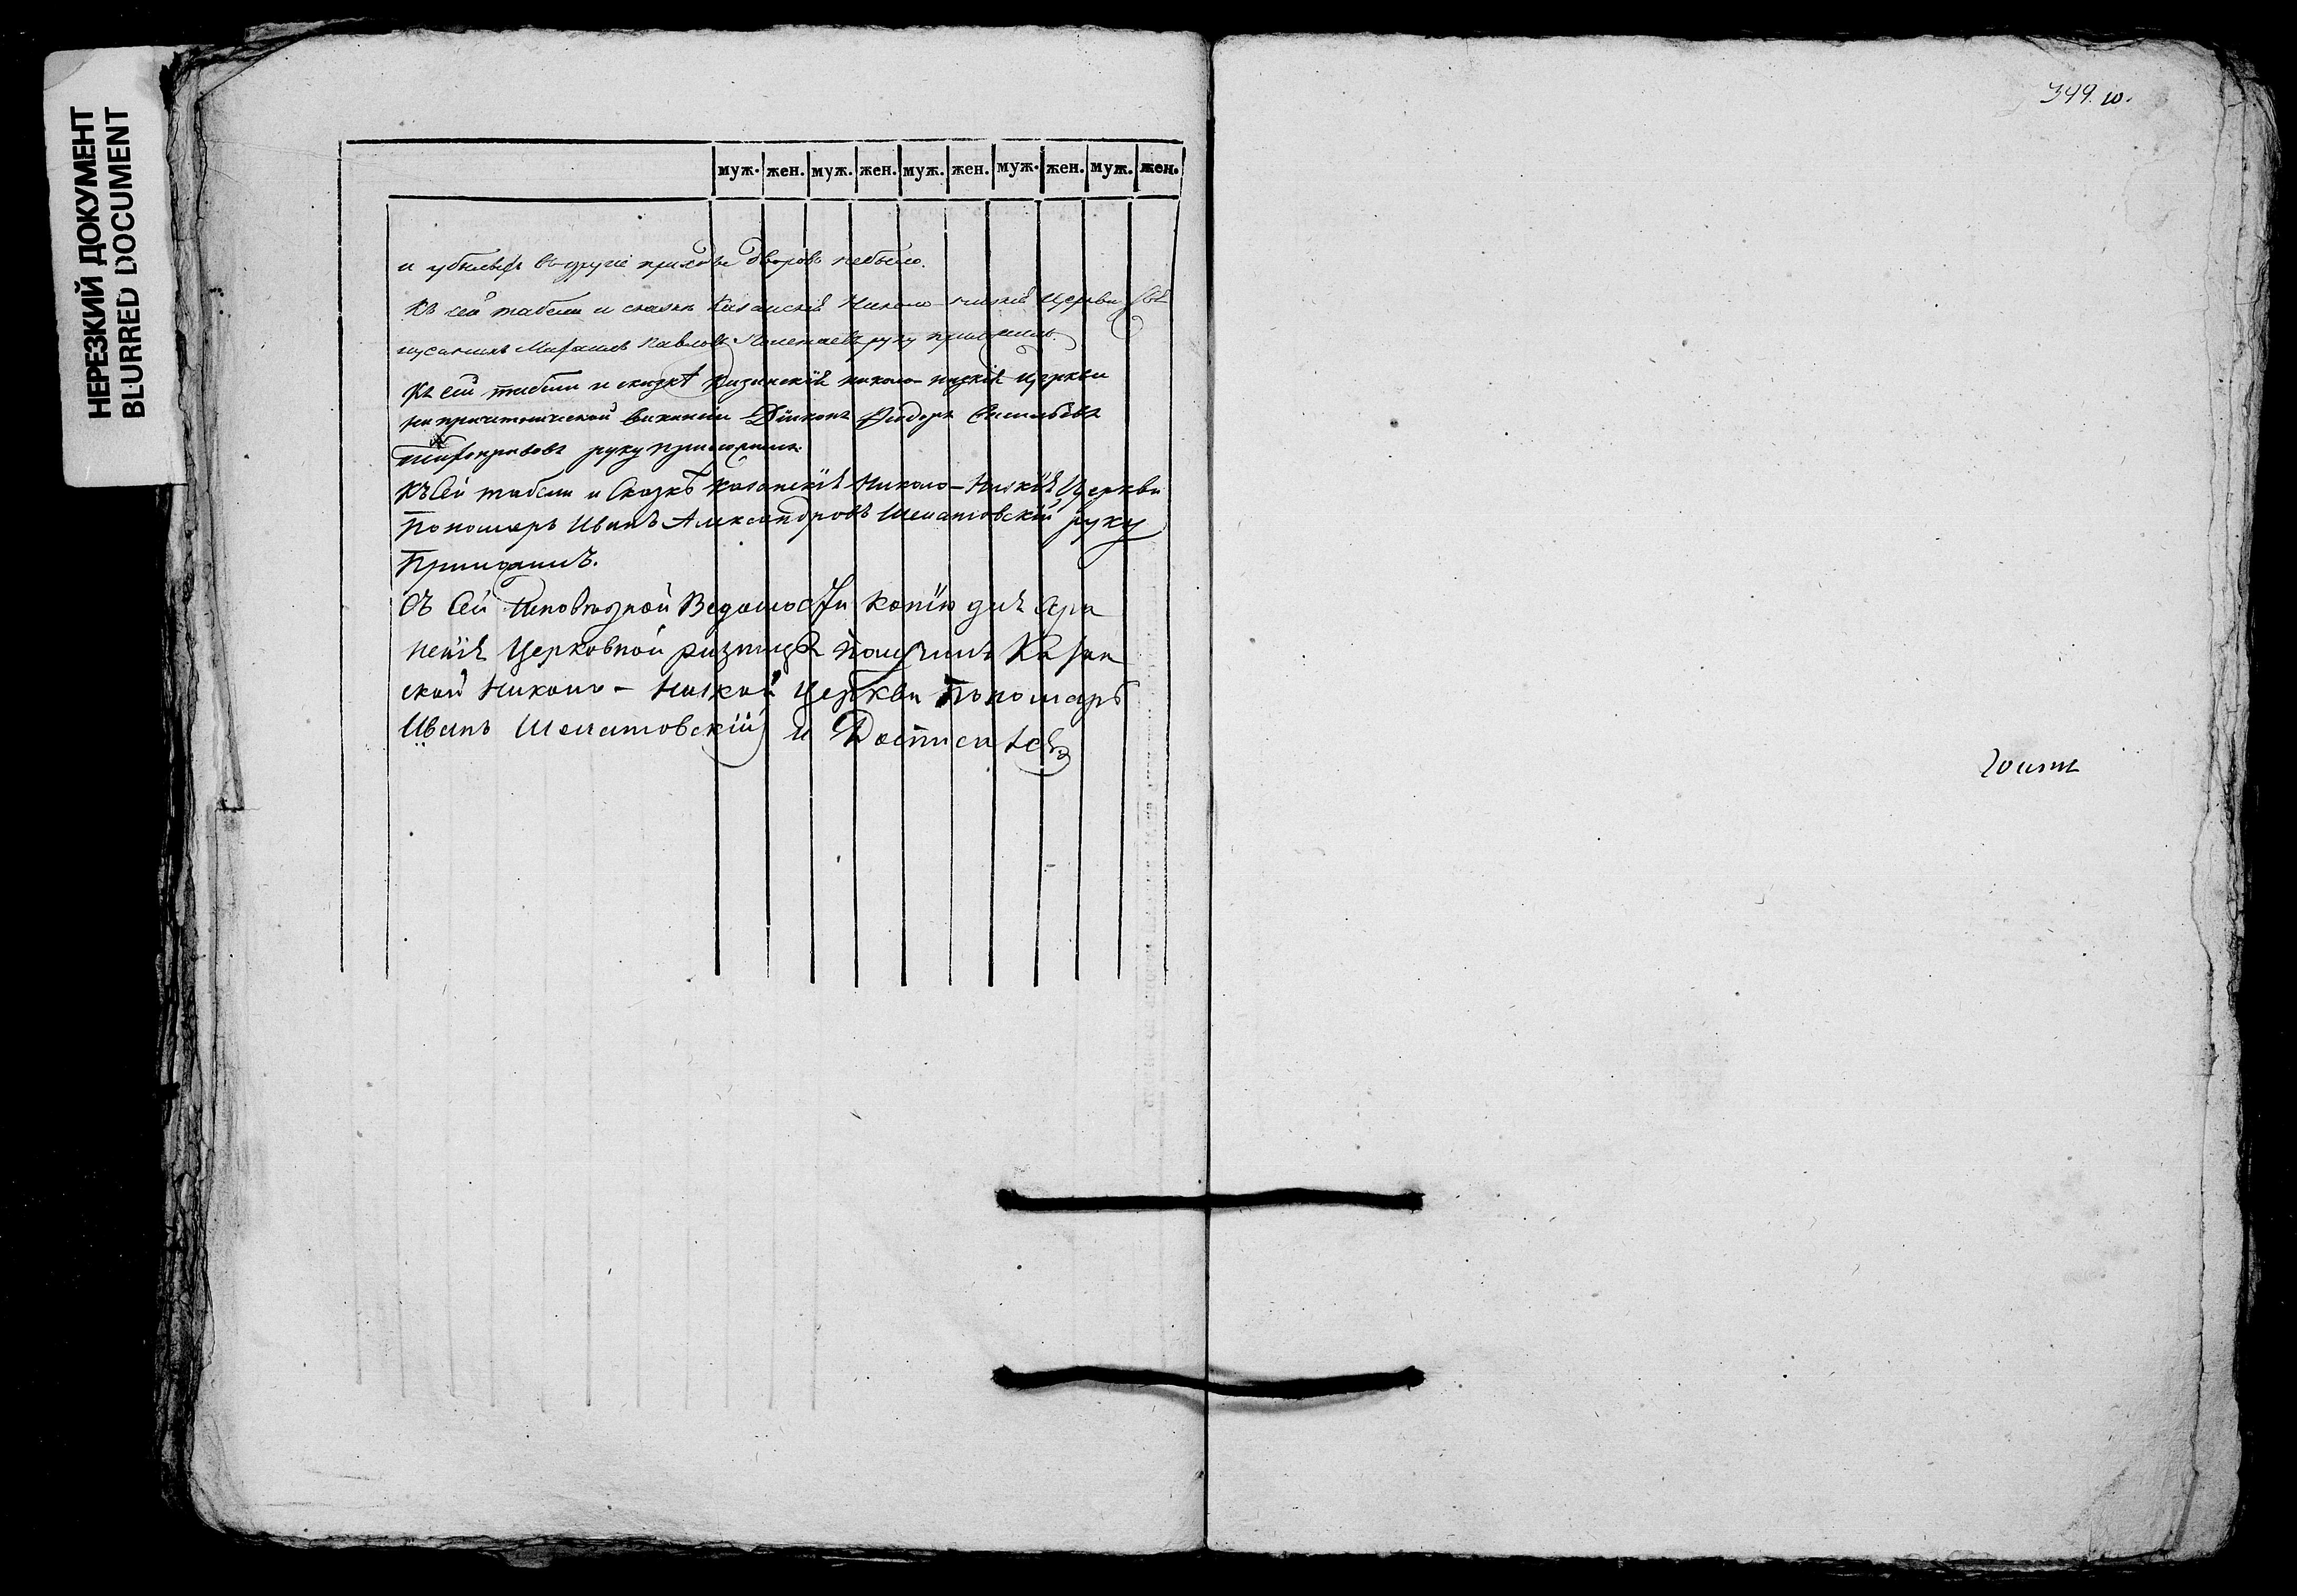 НЕРЕЗКИЙ ДОКУМЕНТ
BLURRED DOCUMENT
муж. жен. муж. жен. муж. жен. муж. жен. муж. жен.
и убылыхъ въ другіе приходы дворовъ небыло.
Къ сей табели и сказкѣ Казанскія Николо-низкія Церкви
Павловъ руку приложилъ.
Къ сей табели и сказкѣ Казанскія николо-низкія Церкви
Діаконъ Ѳедоръ Васильевъ
руку приложилъ.
Къ Сей табели и Сказкѣ Казанскія Николо-Низкія Церкви
Пономарь Иванъ Александровъ Шелатовскій руку
Приложилъ.
Съ Сей Исповѣдной Ведомости копію для хра
ненія Церковной ризницѣ получилъ Казан
ской Николо-Низкой Церкви Пономарь
Иванъ Шелатовскій и
349. 10.